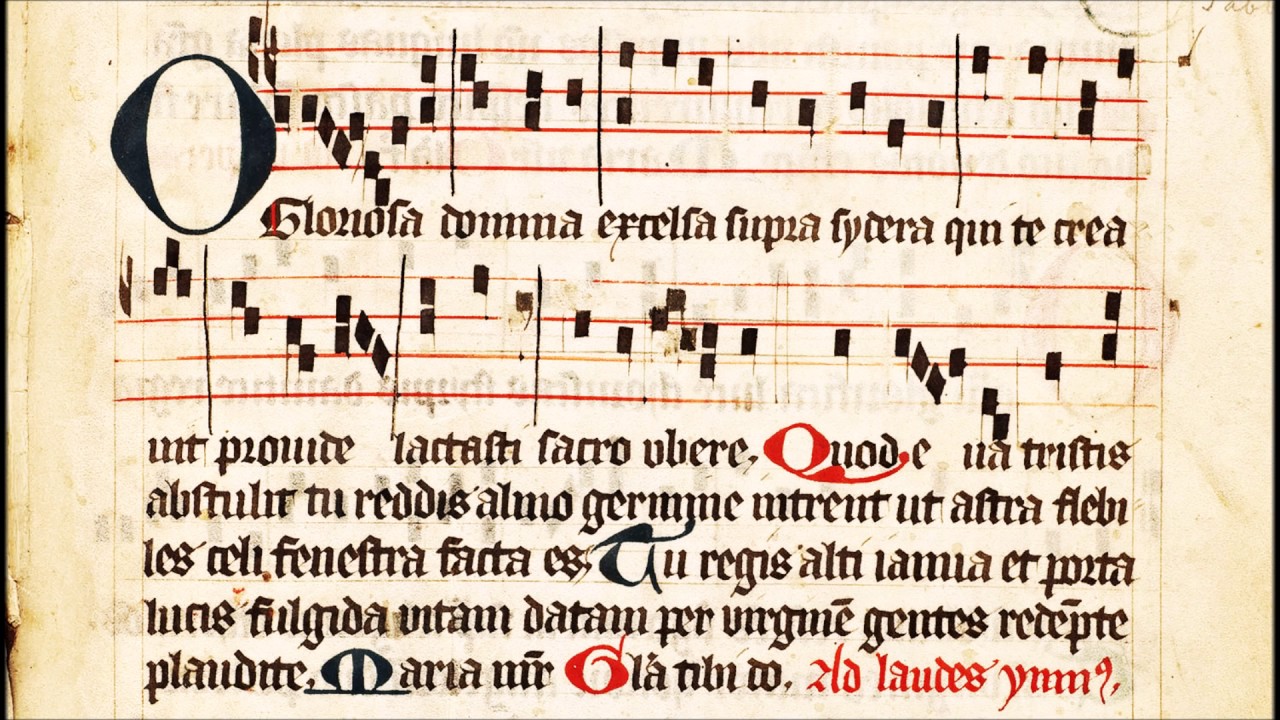 O Gloriosa domina excelsa supra sydera qui te crea
uit prouide lactasti sacro vbere, Quod e ua tristis
abstulit tu reddis almo germine intrent ut astra flebi
les celi fenestra facta es, Tu regis alti ianua et porta
lucis fulgida uitam datam per virginē gentes redēpte
plaudite, Maria mr̄ Gla tibi do, Ad laudes ymnꝰ,